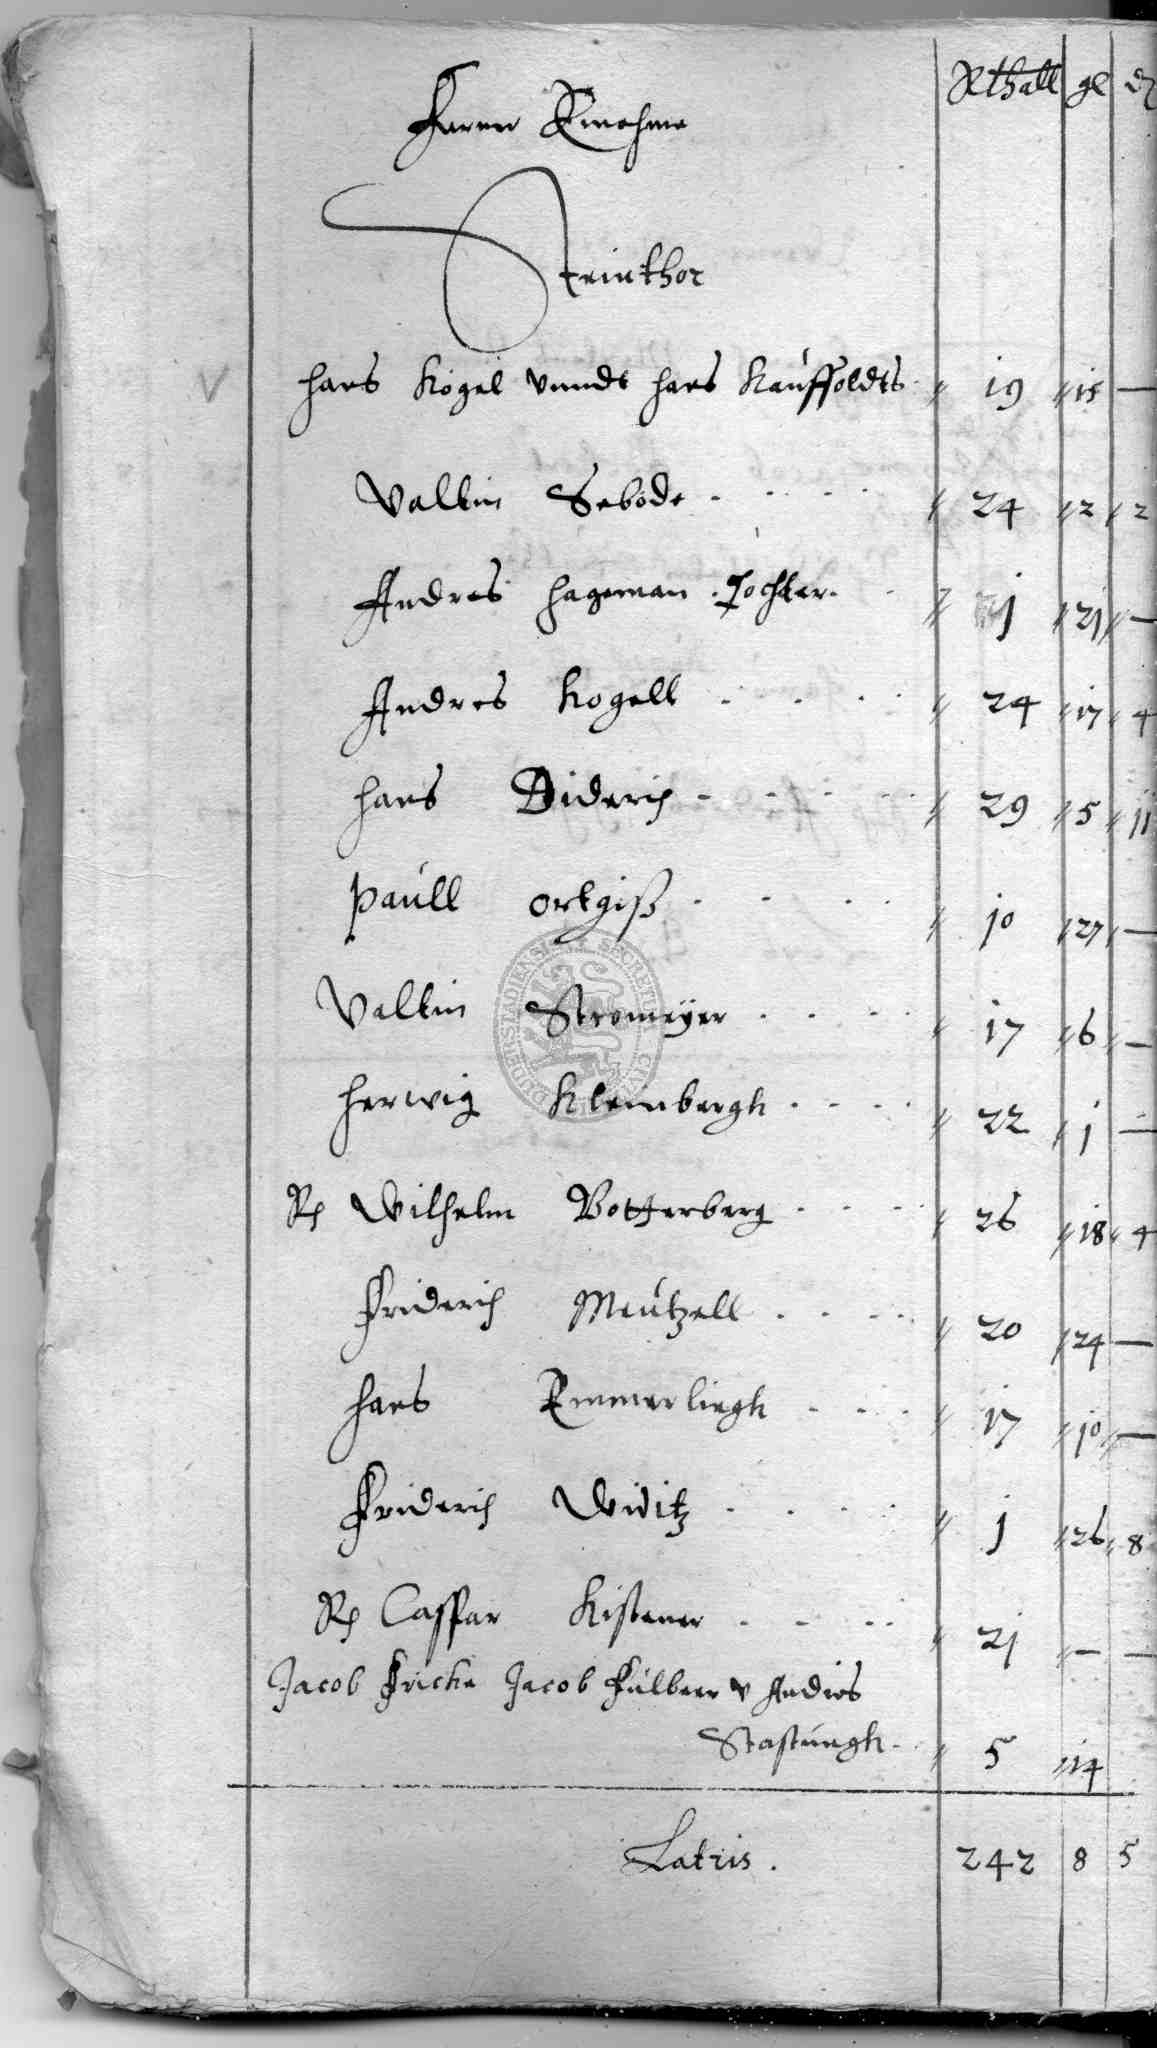 Rthall gl
Ferner Einahme
Steinthor
hans Kögel vnndt hans Kauffoldts " 19 " 15 —
Valtin Sebode . . . . " 24 " 2 " 2
Andres hageman Tochter . " j " 2j " —
Andres Kogell . . . . " 24 " 17 " 4
hans Diderich - - - . " 29 " 5 " jj
Paull ortgiß . . . . " j0 " 27 " —
Valtin Stromeÿer . . . . " 17 " 6 " —
herwig Kleinbergh . . . . " 22 " j —
Wilhelm Botterberg . . . . " 26 " 18 " 4
Friderich Meutzell . . . . " 20 " 24 —
hans Emmerliegh . . . . " 17 " j0 " —
Friderich Wivitz . . . . " j " 26 " 8
Caspar Kistener . . . . " 2j " — —
Jacob Fricke Jacob Fülbeer v Andres
" 5 " 14
Latris . 242 8 5